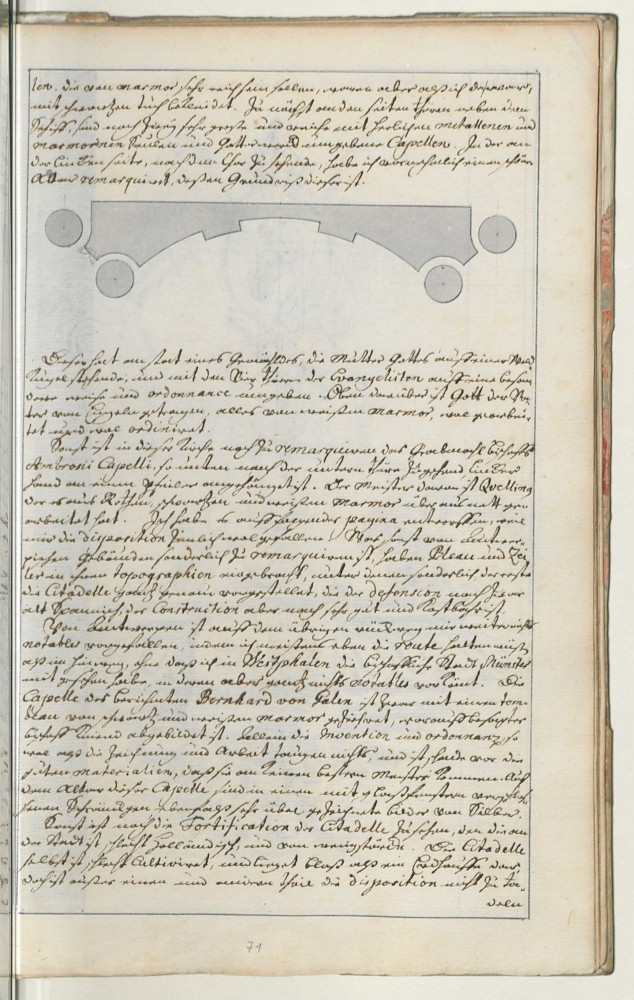 len, die von marmor sehr reich sein sollen, waren aber alß ich da gewesen,
mit schwartzen tuch bekleidet. Zu nächst an den seiten thüren neben dem
Schiff, sind noch zweÿ sehr große und reiche mit herlichen metallenen und
marmornen Seulen und Gatterwerck umgebene Capellen. In der an
der lincken seite, nach dem Chor zu sehende, habe ich vornehmlich einen schönen
Altar remarquiret, deßen Grundriß dieser ist.
Dieser hat an statt eines Gemähldes, die Mutter Gottes auff einer Welt
Kugel stehende, und mit den Vier thieren der Evangelisten auff eine beson
dere weise und ordonnance umgeben. Oben darüber ist Gott der Va-
ter von Engeln getragen, alles von weißen marmor, wol gearbei-
tet und wol ordiniret.
Sonst ist in dieser Kirche noch zu remarquiren das Grabmahl Bischoffs
Ambrosii Capelli, so unten nach der untern thüre zugehend lincker
hand an einem pfeiler angehänget ist. Der Meister davon ist Quelling
der es aus Rothen, schwartzen und weißen marmor überaus nett ge-
arbeitet hat. Ich habe es auff folgender pagina entworffen, weil
mir die disposition zimlich wol gefallen. Was sonst von Antwer-
pischen gebäuden sonderlich zu remarquiren ist, haben Bleau und Zei
ler in ihren topographien eingebracht, unter denen sonderlich der erste
die Citadelle gantz genau vorgestellet, die der defension nach zwar
alt Spannisch, der Construction aber nach sehr gut und kostbahr ist.
Von Antwerpen ist auff dem übrigen rückweg mir weiter nichts
notables vorgefallen, indem ich meistens eben die route halten müßen
alß im hinweg, ohne daß ich in Westphalen die Bischoffliche Stadt Münster
mit gesehen habe, in deren aber gantz nichts notables vorkömt. Die
Capelle des berühmten Bernhard von Galen ist zwar mit einem tom-
beau von schwartz und weißen marmor gezieret, worauff besagter
bischoff kniend abgebildet ist. Allein die Invention und ordonnanz, so
wol alß die zeichnung und Arbeit taugen nichts, und ist schade vor die
guten materialien, daß sie an keinen bessern Meister kommen. Auff
dem Altar dieser Capelle sind in einem mit glaßfenstern verschloß-
senen Schrancken ebenfalß sehr übel gezeichnete bilder von Silber.
Sonst ist noch die Fortification der Citadelle zu sehen, den die an
der Stadt ist schlecht holländisch, und von wenig türde. Die Citadelle
selbst ist schlecht cultiviret, und lieget bloß alß ein Erdhauffe dar,
doch ist außer einen und andern theile die disposition nicht zu ta-
deln
71